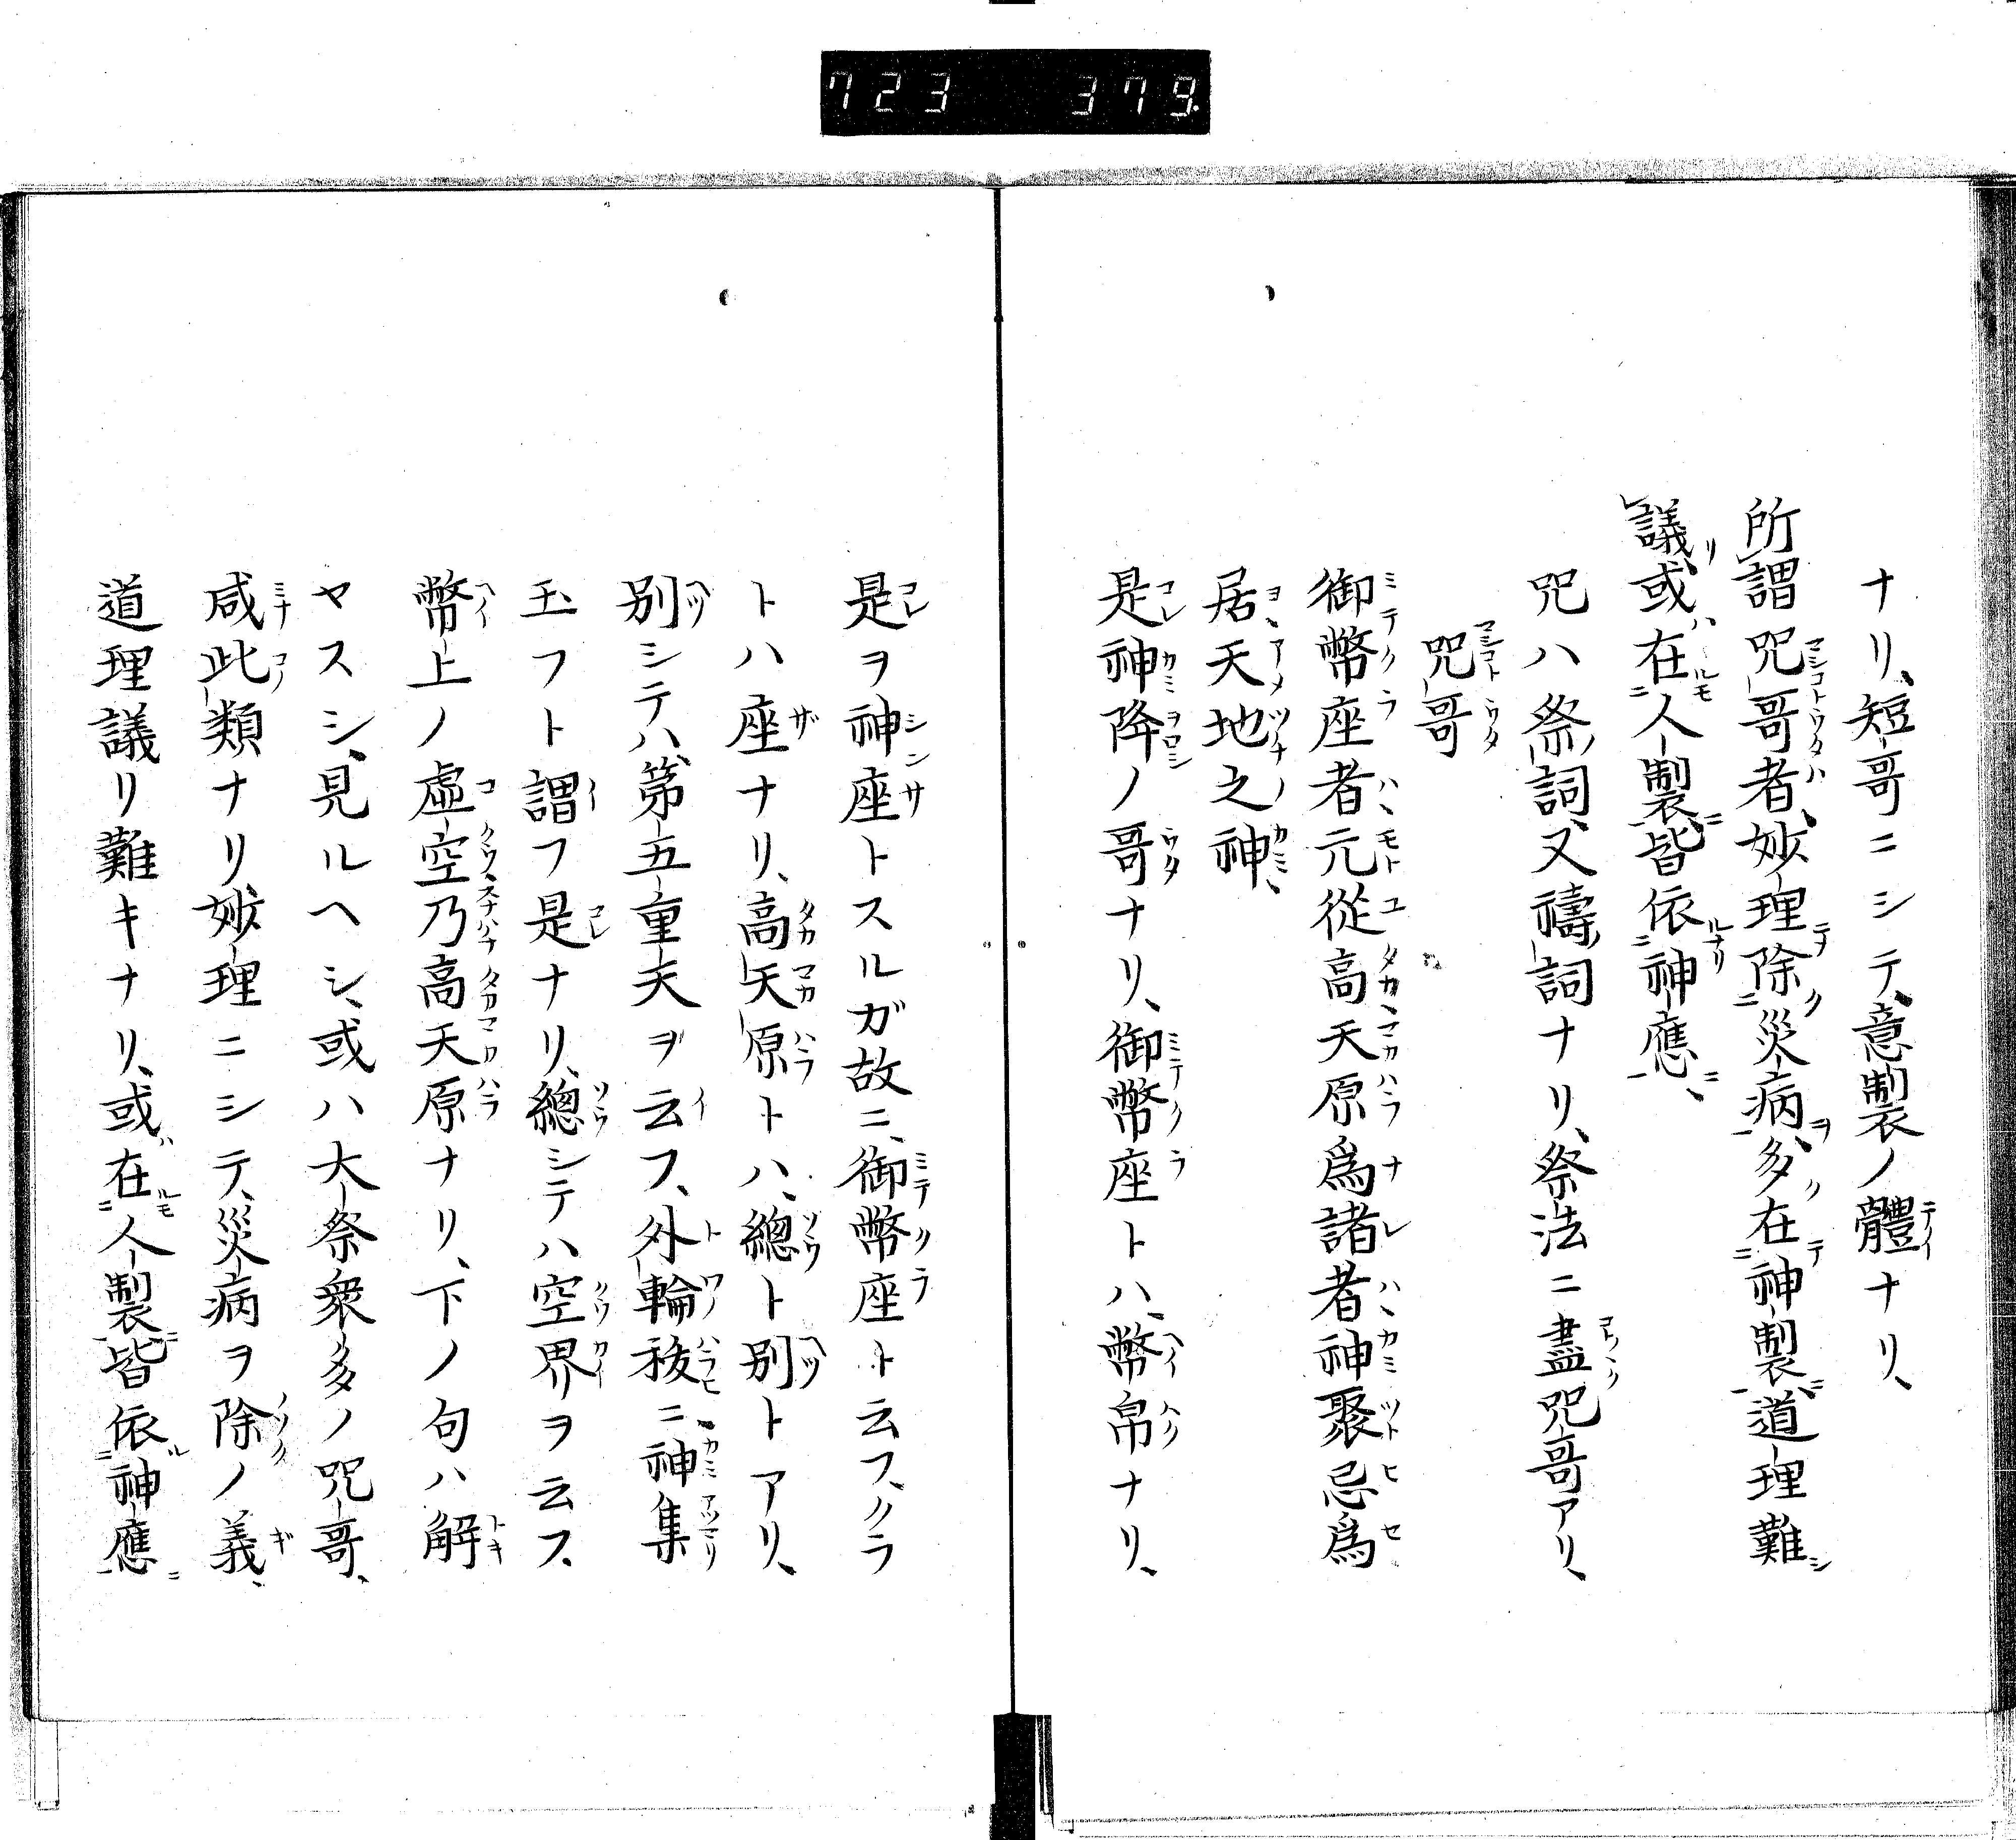 723 379
ナリ、短哥ニシテ、意製ノ體ナリ、
所謂咒哥者、妙理除災病、多在神製、道理難
議、或在人製、皆依神應、
咒ハ祭詞、又禱詞ナリ、祭法ニ盡咒哥アリ、
咒哥
御幣座者元從高天原爲諸者神聚忌爲
居天地之神
是神降ノ哥ナリ、御幣座トハ、幣帛ナリ、
是ヲ神座トスルガ故ニ、御幣座ト云フ、クラ
トハ座ナリ、高天原トハ、總ト別トアリ、
別シテハ、第五重天ヲ云フ、外輪秡ニ神集
玉フト謂フ是ナリ、總シテハ空界ヲ云フ、
幣上ノ虛空乃高天原ナリ、下ノ句ハ解
ヤスシ、見ルヘシ、或ハ大祭衆多ノ咒哥、
咸此類ナリ、妙理ニシテ、災病ヲ除ノ義、
道理議リ難キナリ、或在人製皆依神應